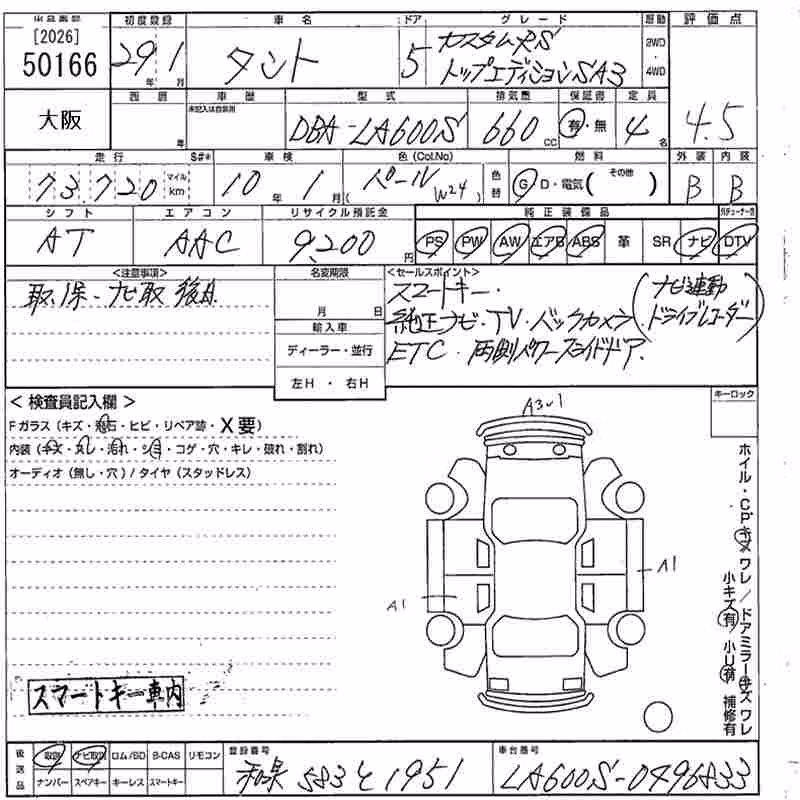 出品番号 初度登録 車名 ドア グレード 駆動 評価点
[2026]
50166
29年 1月 タント 5 カスタムRS
トップエディションSA3
2WD
・
4WD
4.5
大阪
西暦 車歴 型式 排気量 保証書 定員
未記入は自家用
年 DBA-LA600S 660cc 有・無 4名
走行 S#* 車検 色(Col.No) 燃料 外装 内装
73,720 マイル km 10年 1月 (パール W24) 色替 G・D・電気( その他 ) B B
シフト エアコン リサイクル預託金 純正装備品
AT AAC 9,200円 PS PW AW エアB ABS 革 SR ナビ DTV
<注意事項> 名変期限 <セールスポイント>
取.保-ナビ取 後日
月 日
スマートキー・
純正ナビ・TV・バックカメラ(ナビ連動
ドライブレコーダー)
ETC・両側パワースライドドア.
輸入車
ディーラー・並行
左H ・ 右H
<検査員記入欄>
Fガラス(キズ・飛石・ヒビ・リペア跡・X要)
内装(キズ・スレ・汚れ・シミ・コゲ・穴・キレ・破れ・割れ)
オーディオ(無し・穴)/タイヤ(スタッドレス)
キーロック
A3 U1
A1
A1
ホイル・CPキズ ワレ/ドアミラーキズ ワレ
小キズ有/小U有 補修有
スマートキー車内
後送品 取説 ナビ取説 ロム/SD B-CAS リモコン
ナンバー スペアキー キーレス スマートキー
登録番号 車台番号
和泉 583 と 1951 LA600S-0496833